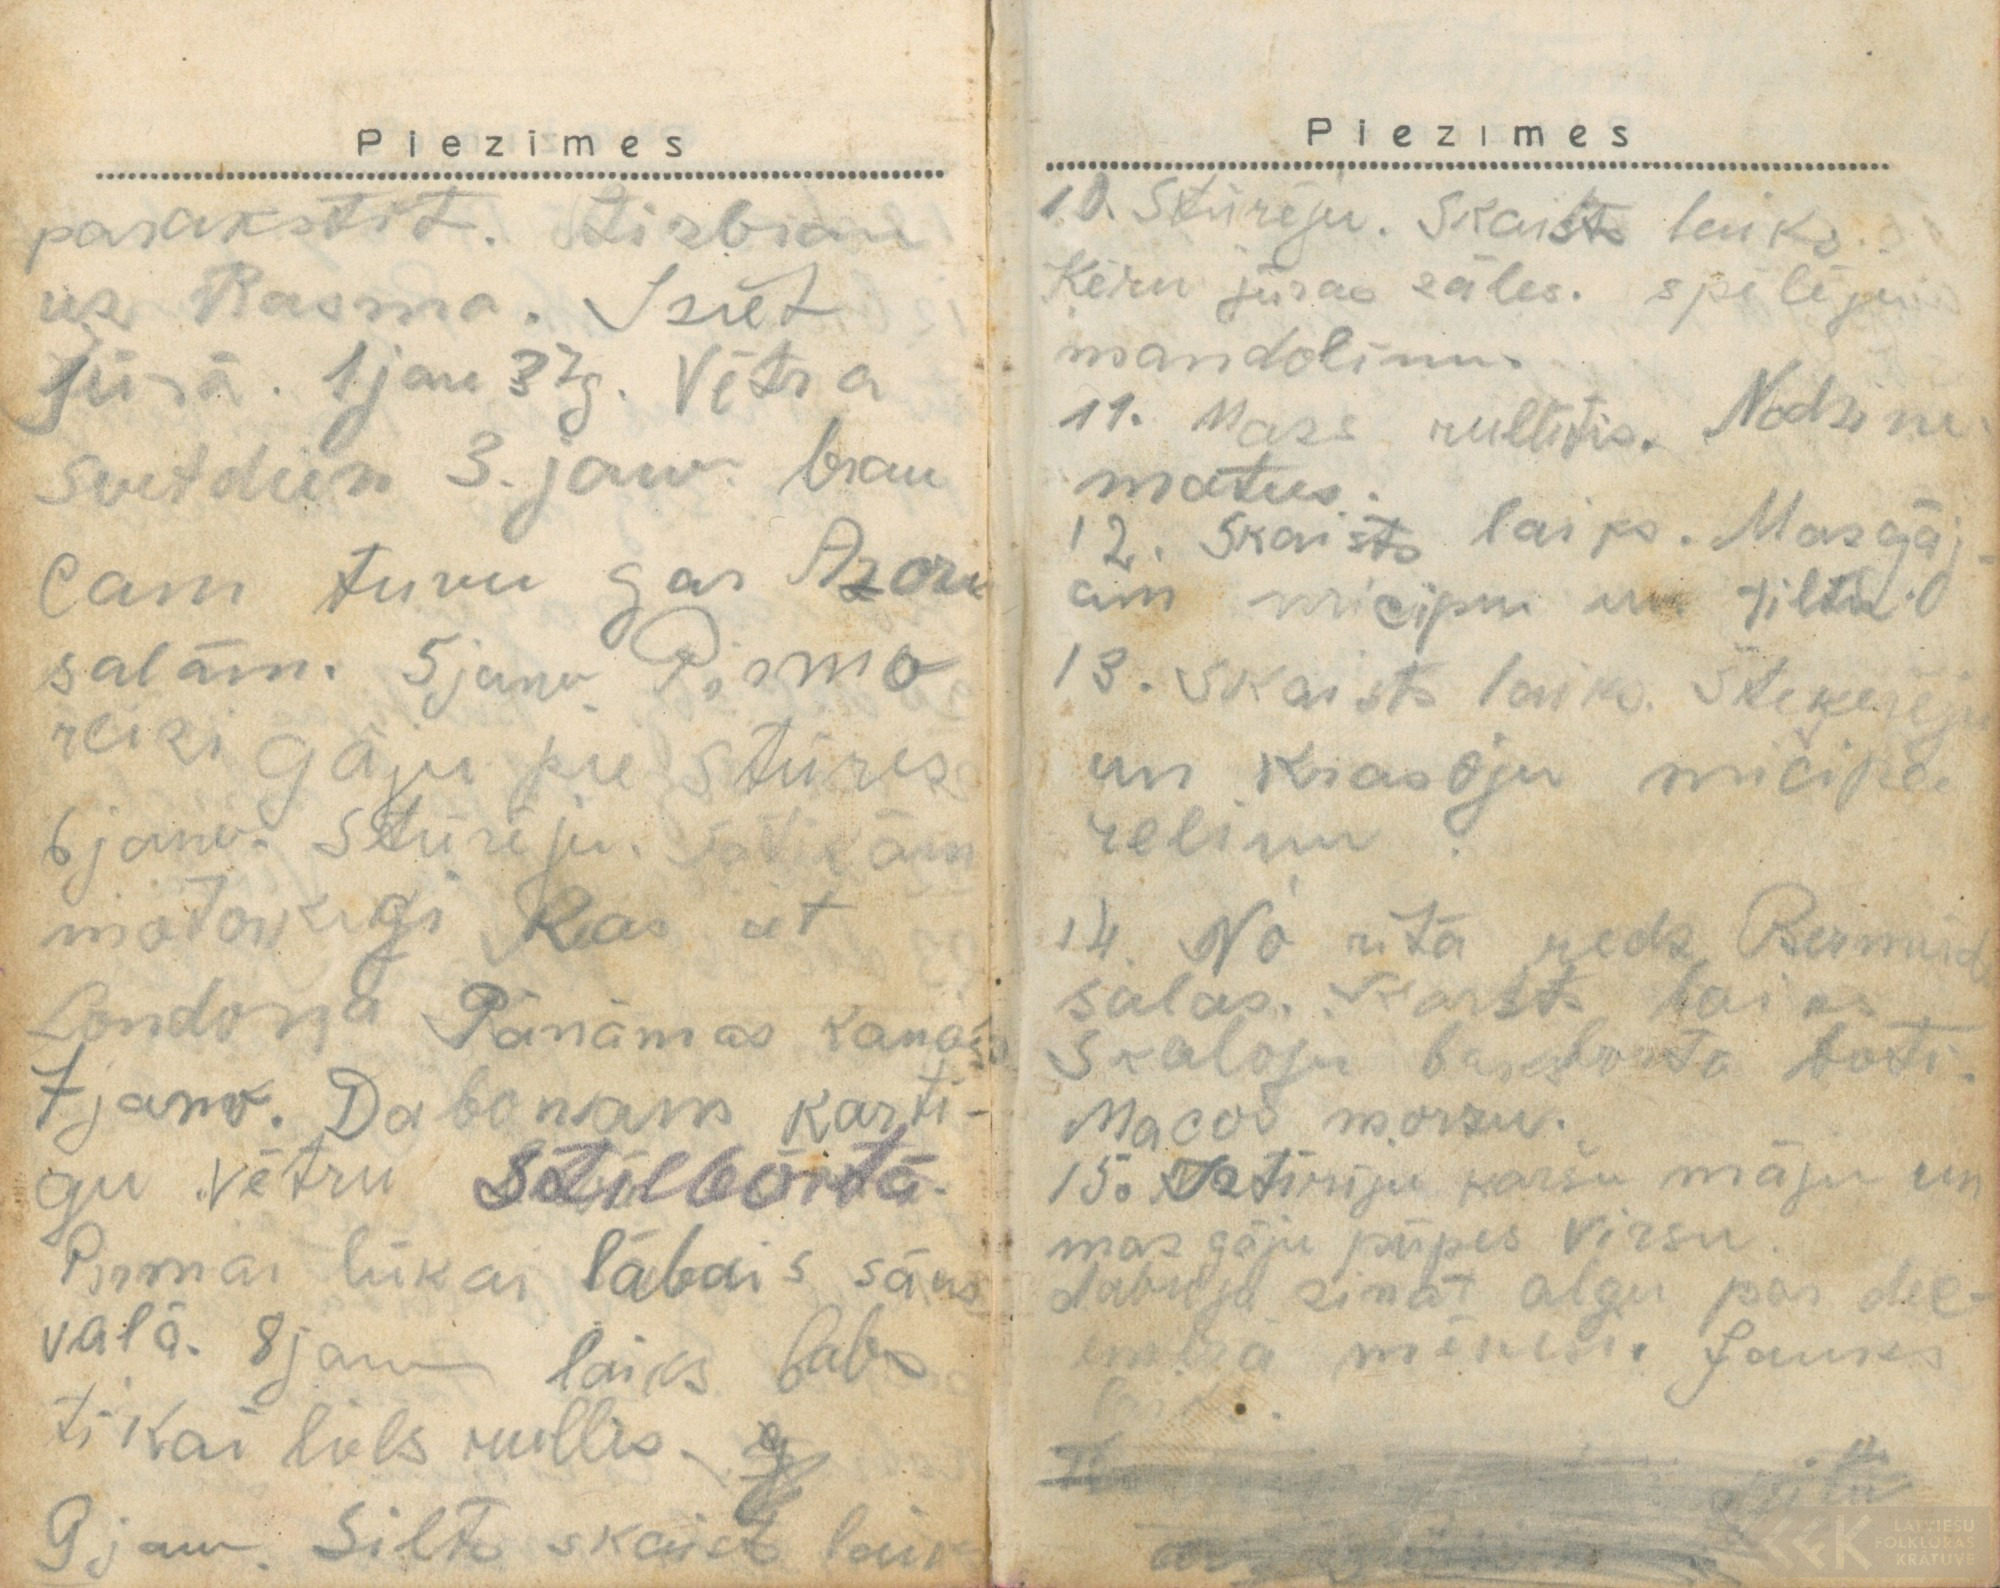 Piezimes
parakstīt. tirbrau
uz Rasma. Iziet
jūrā. 1 jan 37g. Vētra
svetdien 3. janv. brau
cam tuvu gar Azoru
salām. 5 janv. Pirmo
reizi gāju pie stūres
6 janv. Stūrēju. satikām
motorkuģi Kas iet
Londoņa Pānāmas kanāls
7 janv. Dabonam kārti-
gu vētru stūlbortā.
Pirmai lūkai lābais sāns
vaļā. 8 janv laiks labs
tikai liels rullis.
9 janv. Silts skaists laiks
Piezimes
10. Stūrēju. Skaists laiks.
Ķeru jūras zāles. spēlēju
mandolinu.
11. Mazs rullitis. Nodzinu
matus.
12. Skaists laiks. Mazgāj-
ām mičipu un tiltu.
13. Skaists laiks. Šteķerēju
un krasoju mičipa
relinu.
14. No rīta redz Bermuda
salas. Karsts laiks
Skaloju bakborta boti.
Macos morzu.
15. Iztīriju karšu māju un
mazgāju pūpes virsu.
dabuja zināt algu par dec-
embra mēnesi. Jauks
laiks.
LATVIEŠU
FOLKLORAS
KRĀTUVE